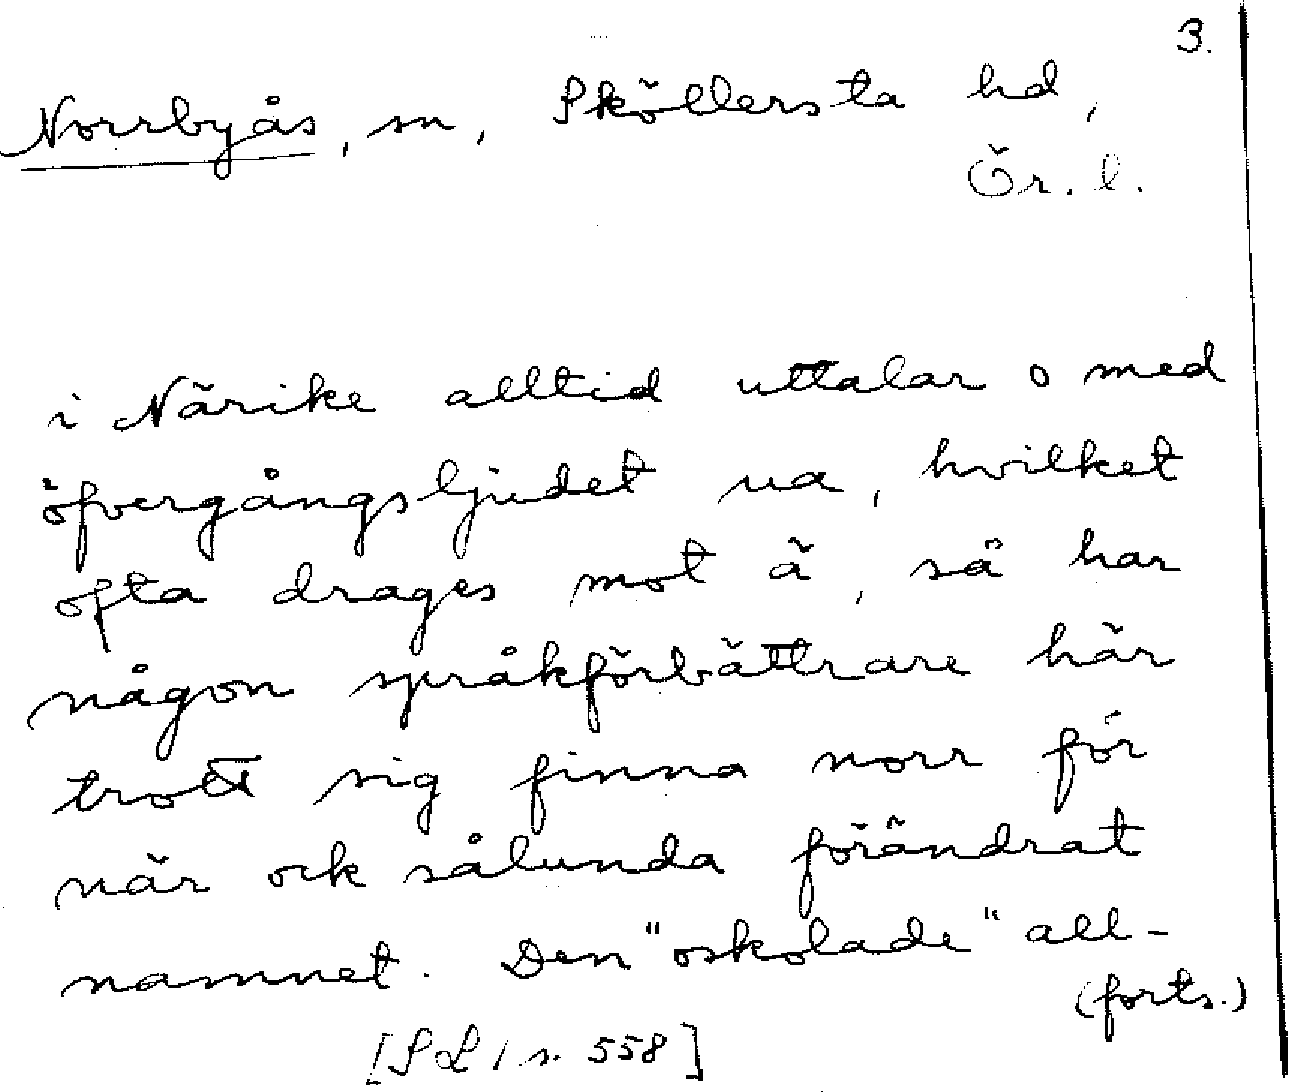 3.
Norrbyås, sn, Sköllersta hd,
Ör. l.
i Närike alltid uttalar o med
öfvergångsljudet ua, hvilket
ofta drages mot ä, så har
någon språkförbättrare här
trott sig finna norr för
när ock sålunda förändrat
namnet. Den "oskolade" all-
(forts.)
[SL 1 s. 558]